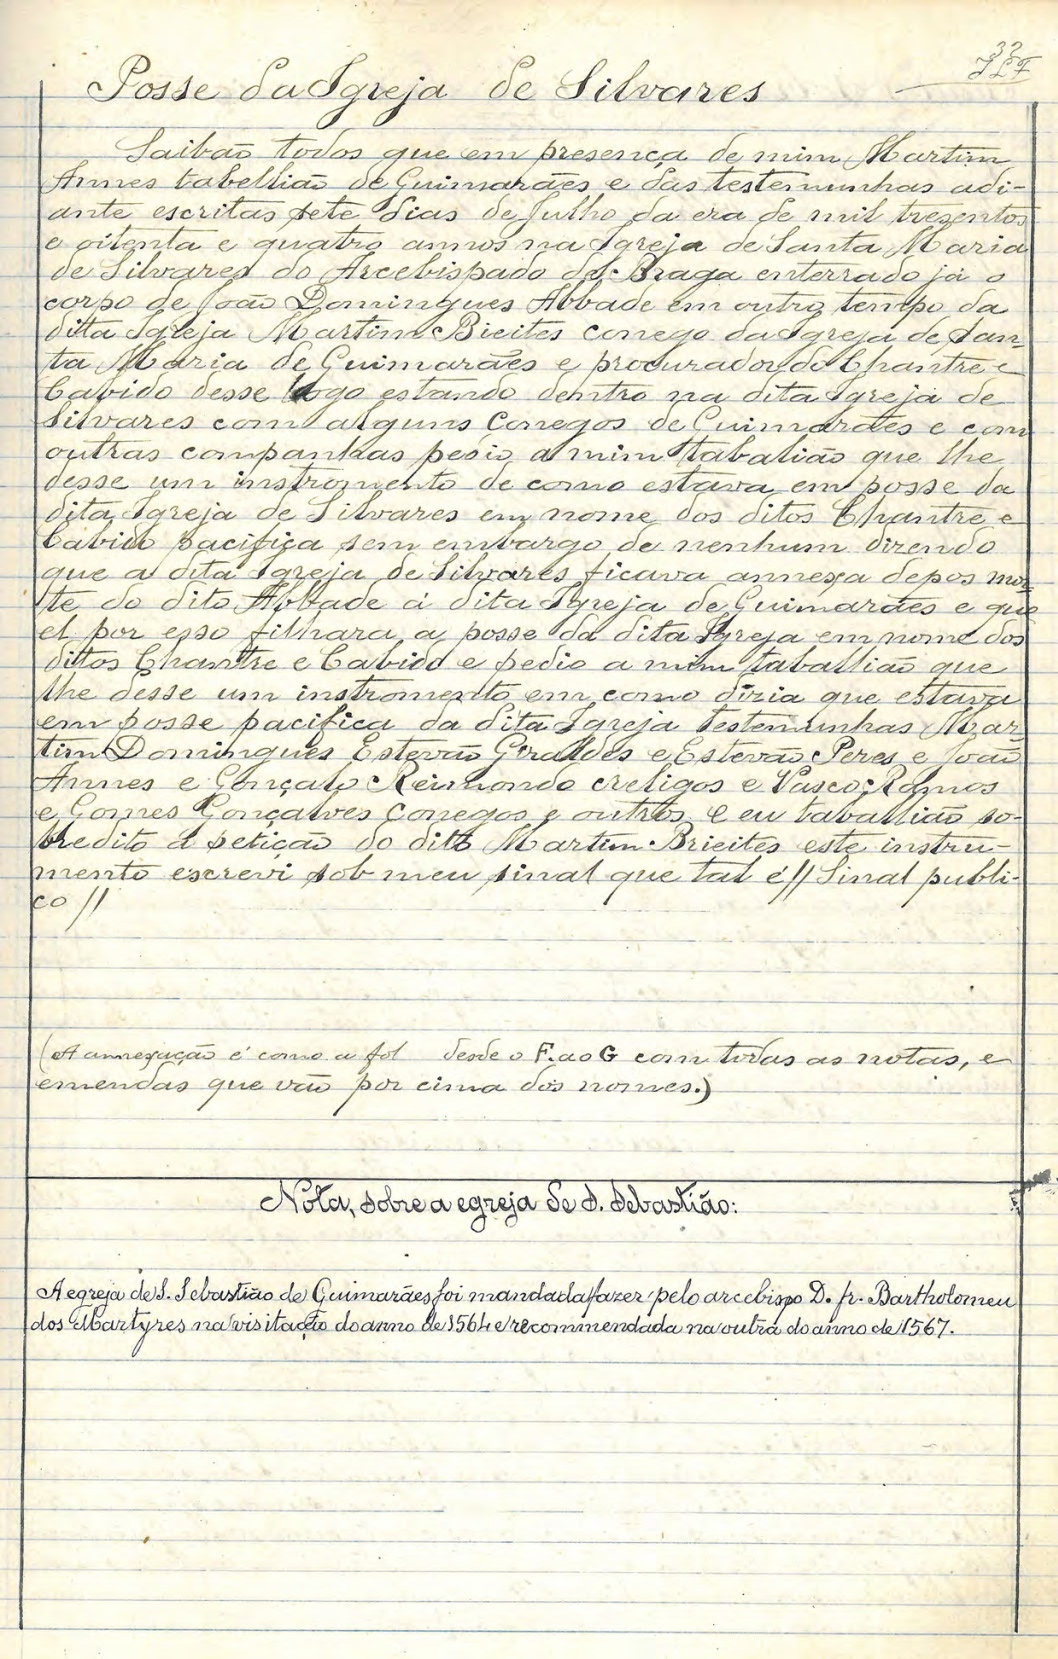 32
Posse da Igreja de Silvares
Saibão todos que em presença de mim Martim
Annes tabellião de Guimarães e das testemunhas adi-
ante escritas sete dias de Julho da era de mil trezentos
e oitenta e quatro annos na Igreja de Santa Maria
de Silvares do Arcebispado de Braga enterrado já o
corpo de João Domingues Abbade em outro tempo da
dita Igreja Martim Bieites conego da Igreja de San-
ta Maria de Guimarães e procurador do Chantre e
Cabido desse logo estando dentro na dita Igreja de
Silvares com alguns Conegos de Guimarães e com
outras companhas pedio a mim tabalião que lhe
desse um instromento de como estava em posse da
dita Igreja de Silvares em nome dos ditos Chantre e
Cabido pacifica sem embargo de nenhum dizendo
que a dita Igreja de Silvares ficava annexa depos mor-
te do dito Abbade á dita Igreja de Guimarães e que
el por esso filhara a posse da dita Igreja em nome dos
ditos Chantre e Cabido e pedio a mim taballião que
lhe desse um instromento em como dizia que estava
em posse pacifica da dita Igreja Testemunhas Mar
tim Domingues Estevão Giraldes e Estevão Peres e João
Annes e Gonçalo Reimondo creligos e Vasco Ramos
e Gomes Gonçalves Conegos e outros e eu taballião so-
bredito á petição do dito Martim Brieites este instru-
mento escrevi sob meu sinal que tal é // Sinal publi-
co //
(A annexação é como a fol desde o F. ao G com todas as notas, e
emendas que vão por cima dos nomes.)
Nota, sobre a egreja de S. Sebastião:
A egreja de S. Sebastião de Guimarães foi mandada fazer pelo arcebispo D. fr. Bartholomeu
dos Martyres na visitação do anno de 1564 e recommendada na outra do anno de 1567.